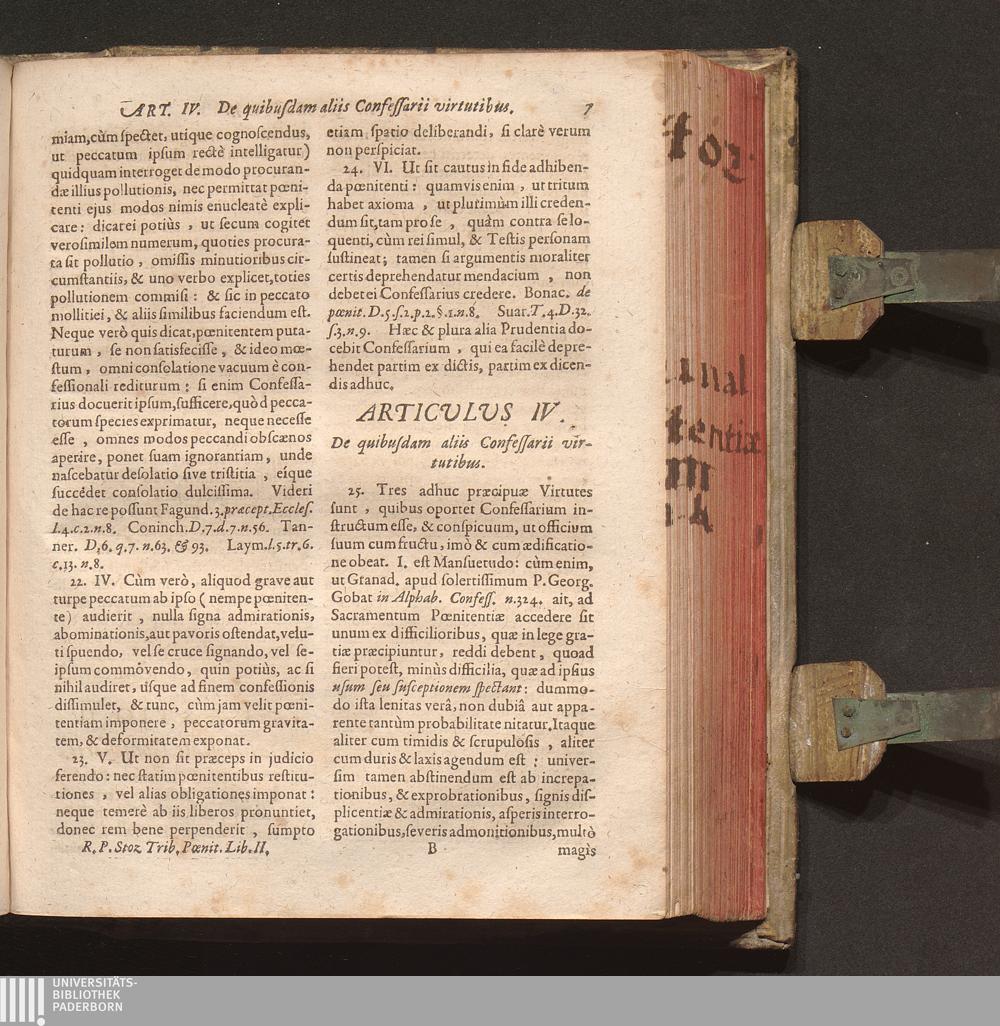 ART. IV. De quibuſdam aliis Confeſſarii virtutibus. 7
miam, cùm ſpectet, utique cognoſcendus,
ut peccatum ipſum rectè intelligatur)
quidquam interroget de modo procuran-
dæ illius pollutionis, nec permittat pœni-
tenti ejus modos nimis enucleatè expli-
care: dicat ei potiùs, ut ſecum cogitet
veroſimilem numerum, quoties procura-
ta ſit pollutio, omiſſis minutioribus cir-
cumſtantiis, & uno verbo explicet, toties
pollutionem commiſi: & ſic in peccato
mollitiei, & aliis ſimilibus faciendum eſt.
Neque verò quis dicat, pœnitentem puta-
turum, ſe non ſatisfeciſſe, & ideo mœ-
ſtum, omni conſolatione vacuum è con-
feſſionali rediturum: ſi enim Confeſſa-
rius docuerit ipſum, ſufficere, quòd pecca-
torum ſpecies exprimatur, neque neceſſe
eſſe, omnes modos peccandi obſcænos
aperire, ponet ſuam ignorantiam, unde
naſcebatur deſolatio ſive triſtitia, eíque
ſuccedet conſolatio dulciſſima. Videri
de hac re poſſunt Fagund. 3. præcept. Eccleſ.
l. 4. c. 2. n. 8. Coninch. D. 7. d. 7. n. 56. Tan-
ner. D. 6. q. 7. n. 63. & 93. Laym. l. 5. tr. 6.
c. 13. n. 8.
22. IV. Cùm verò, aliquod grave aut
turpe peccatum ab ipſo (nempe pœniten-
te) audierit, nulla ſigna admirationis,
abominationis, aut pavoris oſtendat, velu-
ti ſpuendo, vel ſe cruce ſignando, vel ſe-
ipſum commóvendo, quin potiùs, ac ſi
nihil audiret, uſque ad finem confeſſionis
diſſimulet, & tunc, cùm jam velit pœni-
tentiam imponere, peccatorum gravita-
tem, & deformitatem exponat.
23. V. Ut non ſit præceps in judicio
ferendo: nec ſtatim pœnitentibus reſtitu-
tiones, vel alias obligationes imponat:
neque temerè ab iis liberos pronuntiet,
donec rem bene perpenderit, ſumpto
R. P. Stoz Trib. Pœnit. Lib. II.
etiam ſpatio deliberandi, ſi clarè verum
non perſpiciat.
24. VI. Ut ſit cautus in fide adhiben-
da pœnitenti: quamvis enim, ut tritum
habet axioma, ut plurimùm illi creden-
dum ſit, tam pro ſe, quàm contra ſe lo-
quenti, cùm rei ſimul, & Teſtis perſonam
ſuſtineat; tamen ſi argumentis moraliter
certis deprehendatur mendacium, non
debet ei Confeſſarius credere. Bonac. de
pœnit. D. 5. ſ. 2. p. 2. §. 1. n. 8. Suar. T. 4. D. 32.
ſ. 3. n. 9. Hæc & plura alia Prudentia do-
cebit Confeſſarium, qui ea facilè depre-
hendet partim ex dictis, partim ex dicen-
dis adhuc.
ARTICULUS IV.
De quibuſdam aliis Confeſſarii vir-
tutibus.
25. Tres adhuc præcipuæ Virtutes
ſunt, quibus oportet Confeſſarium in-
ſtructum eſſe, & conſpicuum, ut officium
ſuum cum fructu, imò & cum ædificatio-
ne obeat. I. eſt Manſuetudo: cùm enim,
ut Granad. apud ſolertiſſimum P. Georg.
Gobat in Alphab. Confeſſ. n. 324. ait, ad
Sacramentum Pœnitentiæ accedere ſit
unum ex difficilioribus, quæ in lege gra-
tiæ præcipiuntur, reddi debent, quoad
fieri poteſt, minùs difficilia, quæ ad ipſius
uſum ſeu ſuſceptionem ſpectant: dummo-
do iſta lenitas verâ, non dubiâ aut appa-
rente tantùm probabilitate nitatur. Itaque
aliter cum timidis & ſcrupuloſis, aliter
cum duris & laxis agendum eſt: univer-
ſim tamen abſtinendum eſt ab increpa-
tionibus, & exprobrationibus, ſignis diſ-
plicentiæ & admirationis, aſperis interro-
gationibus, ſeveris admonitionibus, multò
B magis
toz
inal
tentiæ
UNIVERSITÄTS-
BIBLIOTHEK
PADERBORN